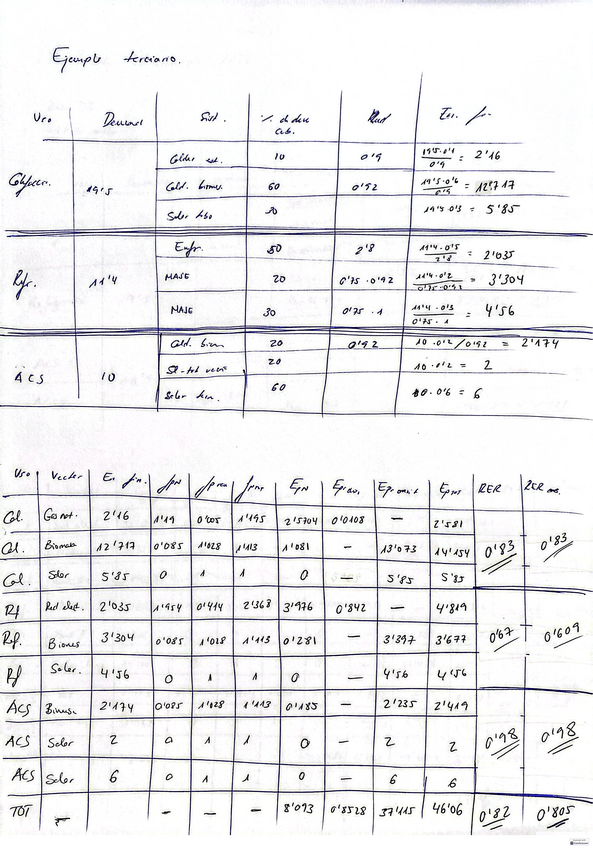 Ejemplo terciario.
Uso Demand Sist. % de dem cub. Rend En. fin
Calefacc. 19'5 Caldera est. 10 0'9 19'5·0'1 / 0'9 = 2'16
Cald. biomas. 60 0'92 19'5·0'6 / 0'9 = 12'717
Solar 30 19'5·0'3 = 5'85
Refr. 11'4 Enfr. 50 2'8 11'4·0'5 / 2'8 = 2'035
MASE 20 0'75·0'92 11'4·0'2 / 0'75·0'92 = 3'304
MASE 30 0'75·1 11'4·0'3 / 0'75·1 = 4'56
ACS 10 Cald. biom 20 0'92 10·0'2/0'92 = 2'174
20 10·0'2 = 2
Solar 60 10·0'6 = 6
Uso Vector En fin. fpn fpren fptot Epn Epren Eptot RER RER
Cal. Gas nat. 2'16 1'19 0'005 1'195 2'5704 0'0108 — 2'581
Cal. Biomasa 12'717 0'085 1'028 1'113 1'081 — 13'073 14'154 0'83 0'83
Cal. Solar 5'85 0 1 1 0 — 5'85 5'85
Rf Red elect. 2'035 1'954 0'414 2'368 3'976 0'842 — 4'819
Rf. Biomas 3'304 0'085 1'028 1'113 0'281 — 3'397 3'677 0'67 0'609
Rf Solar. 4'56 0 1 1 0 — 4'56 4'56
ACS Biomas. 2'174 0'085 1'028 1'113 0'185 — 2'235 2'419
ACS Solar 2 0 1 1 0 — 2 2 0'98 0'98
ACS Solar 6 0 1 1 0 — 6 6
TOT — — — 8'093 0'8528 37'115 46'06 0'82 0'805